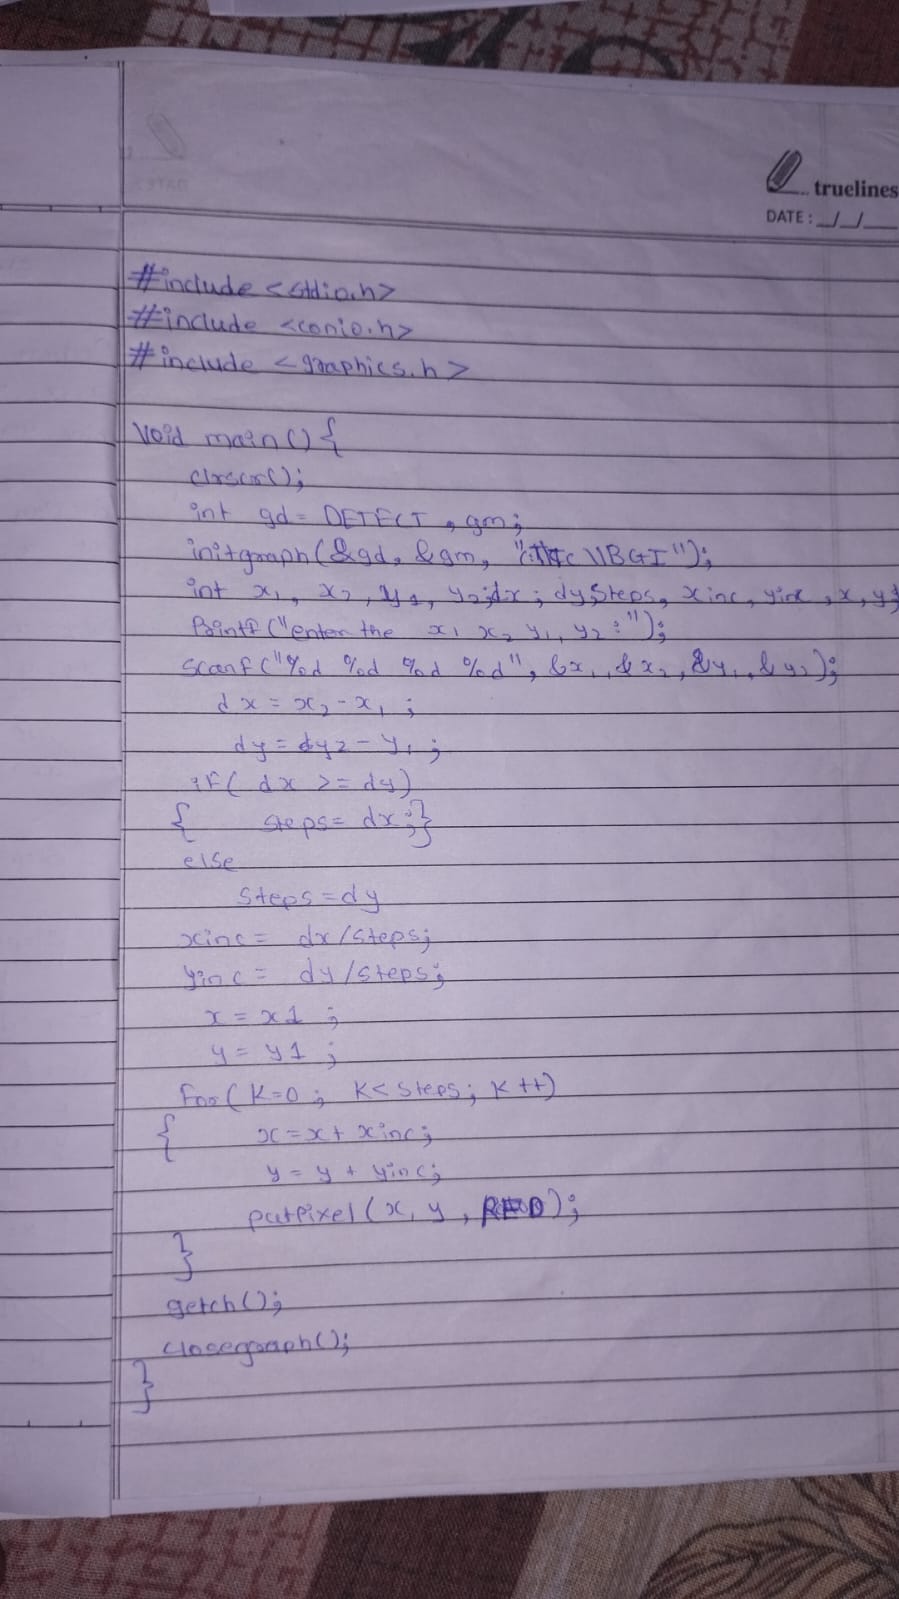 truelines
DATE: _/_/_
#include <stdio.h>
#include <conio.h>
#include <graphics.h>
void main() {
clrscr();
int gd = DETECT, gm;
initgraph(&gd, &gm, "\\BGI");
int x1, x2, y1, y2, dx, dy, steps, xinc, yinc, x, y;
Printf("enter the x1 x2 y1, y2 :");
scanf("%d %d %d %d", &x1, &x2, &y1, &y2);
dx = x2 - x1;
dy = y2 - y1;
if( dx >= dy)
{ steps= dx;}
else
Steps=dy
xinc= dx/steps;
yinc= dy/steps;
x = x1 ;
y = y1 ;
for( K=0 ; K< Steps; K++)
{ x=x+ xinc;
y = y + yinc;
putpixel (x, y, RED);
}
getch();
closegraph();
}